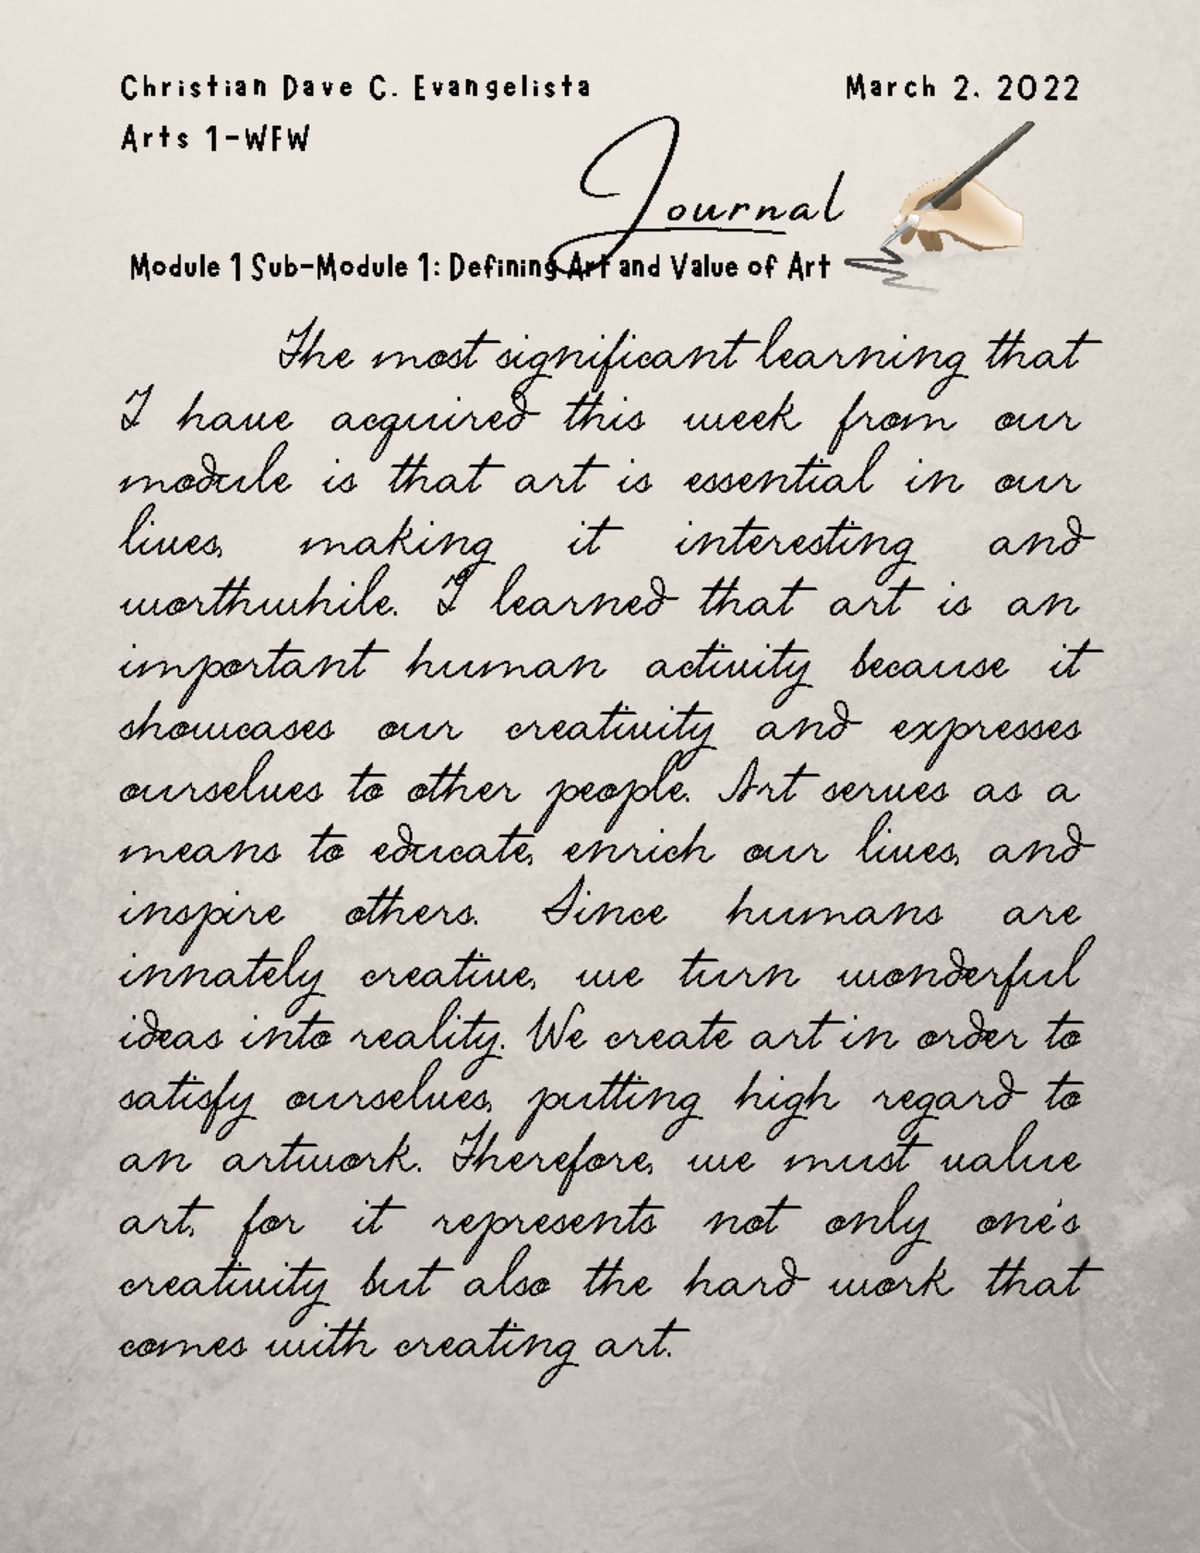 Christian Dave C. Evangelista March 2. 2022
Arts 1-WFW
Journal
Module 1 Sub-Module 1: Defining Art and Value of Art
The most significant learning that
I have acquired this week from our
module is that art is essential in our
lives, making it interesting and
worthwhile. I learned that art is an
important human activity because it
showcases our creativity and expresses
ourselves to other people. Art serves as a
means to educate, enrich our lives, and
inspire others. Since humans are
innately creative, we turn wonderful
ideas into reality. We create art in order to
satisfy ourselves, putting high regard to
an artwork. Therefore, we must value
art, for it represents not only one's
creativity but also the hard work that
comes with creating art.